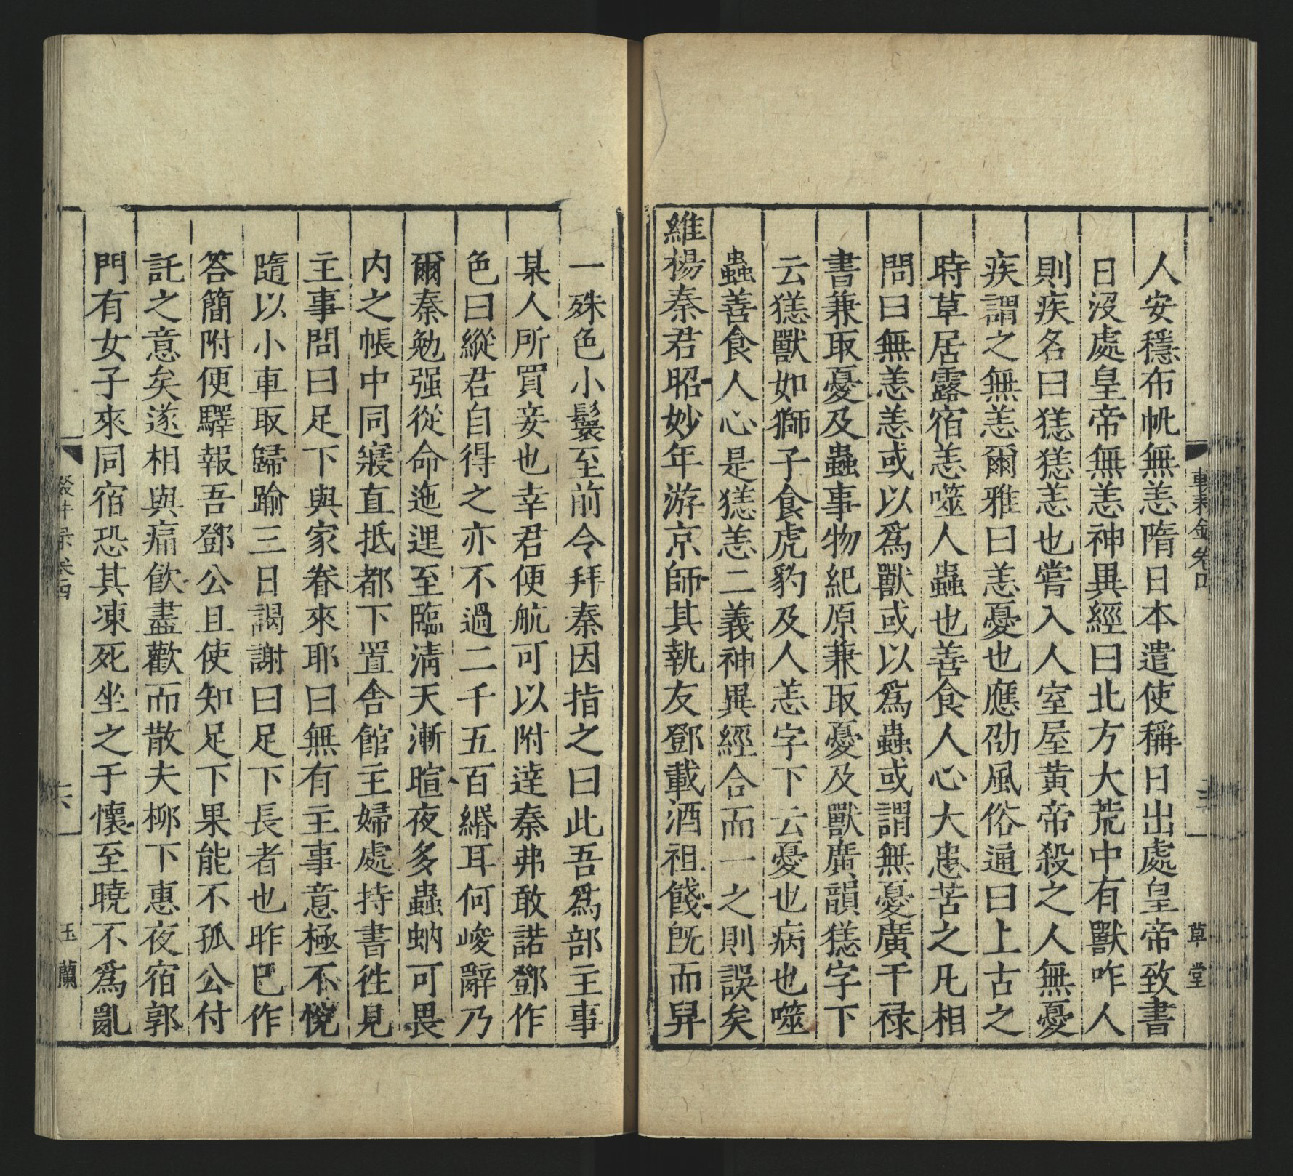 人安穩布帆無恙隋日本遣使稱日出處皇帝致書
日沒處皇帝無恙神異經曰北方大荒中有獸咋人
則疾名曰㺊㺊恙也嘗入人室屋黄帝殺之人無憂
疾謂之無恙爾雅曰恙憂也應劭風俗通曰上古之
時草居露宿恙噬人蟲也善食人心大患苦之凡相
問曰無恙恙或以爲獸或以爲蟲或謂無憂廣干禄
書兼取憂及蟲事物紀原兼取憂及獸廣韻㺊字下
云㺊獸如獅子食虎豹及人恙字下云憂也病也噬
蟲善食人心是㺊恙二義神異經合而一之則誤矣
維楊秦君昭妙年游京師其執友鄧載酒祖餞旣而舁
一殊色小鬟至前令拜秦因指之曰此吾爲部主事
某人所買妾也幸君便航可以附達秦弗敢諾鄧作
色曰縱君自得之亦不過二千五百緡耳何峻辭乃
爾秦勉强從命迤邐至臨清天漸暄夜多蟲蚋可畏
内之帳中同寢直抵都下置舍館主婦處持書徃見
主事問曰足下與家眷來耶曰無有主事意極不悅
隨以小車取歸踰三日謁謝曰足下長者也昨已作
答簡附便驛報吾鄧公且使知足下果能不孤公付
託之意矣遂相與痛飮盡歡而散夫柳下惠夜宿郭
門有女子來同宿恐其凍死坐之于懷至曉不爲亂
草堂
玉蘭